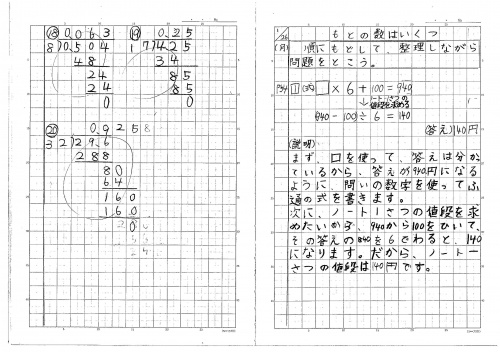 ⑱ 0.063
8)0.504
48
24
24
0
⑲ 0.25
17)4.25
34
85
85
0
⑳ 0.925
32)29.6
288
80
64
160
160
0
1/26
(月)
もとの数はいくつ
順にもどして、整理しながら
問題をとこう。
P94 1 □×6+100=940
940-100÷6=140
答え)140円
(説明)
まず、□を使って、答えは分か
ているから、答えが940円になる
ように、問いの数字を使ってふ
通の式を書きます。
次に、ノート1さつの値段を求
めたいから、940から100をひいて、
その答えの840を6でわると、140
になります。だから、ノート一
さつの値段は140円です。